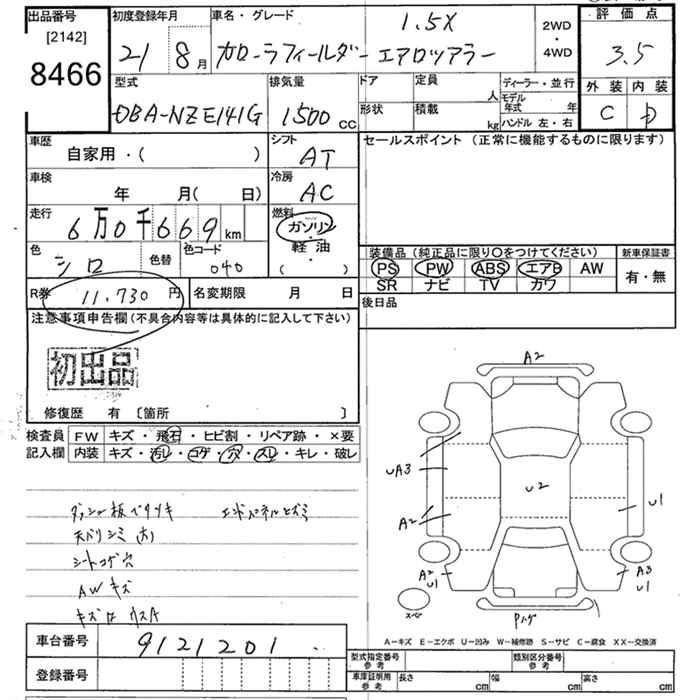 出品番号
[2142]
8466
初度登録年月
21 8月
車名・グレード
1.5X
カローラフィールダー エアロツアラー
2WD
・
4WD
評価点
3.5
外装 内装
C
型式
DBA-NZE141G
排気量
1500 cc
ドア 定員 人
形状 積載 kg
ディーラー・並行
モデル年式 年
ハンドル 左・右
車歴
自家用・( )
シフト
AT
セールスポイント (正常に機能するものに限ります)
車検
年 月( 日)
冷房
AC
走行
6万0千669km
燃料
ガソリン
・
軽油
( )
色
シロ
色替
色コード
040
装備品 (純正品に限り〇をつけてください)
PS PW ABS エアB AW
SR ナビ TV カワ
新車保証書
有・無
R券 11,730 円
名変期限 月 日
後日品
注意事項申告欄(不具合内容等は具体的に記入して下さい)
初出品
修復歴 有 〔箇所 〕
検査員
記入欄
FW キズ・飛石・ヒビ割・リペア跡・×要
内装 キズ・汚レ・コゲ・穴・スレ・キレ・破レ
ダッシュ板ベタツキ エンドパネルヒズミ
天バリシミ
シートコゲ穴
AWキズ
A2
UA3
A2
U2
U1
A2
U1
A3
U1
スペア
A−キズ E−エクボ U−凹み W−補修跡 S−サビ C−腐食 XX−交換済
車台番号 9121201
登録番号
型式指定番号
参考
類別区分番号
参考
車庫証明用
参考
長さ cm 幅 cm 高さ cm